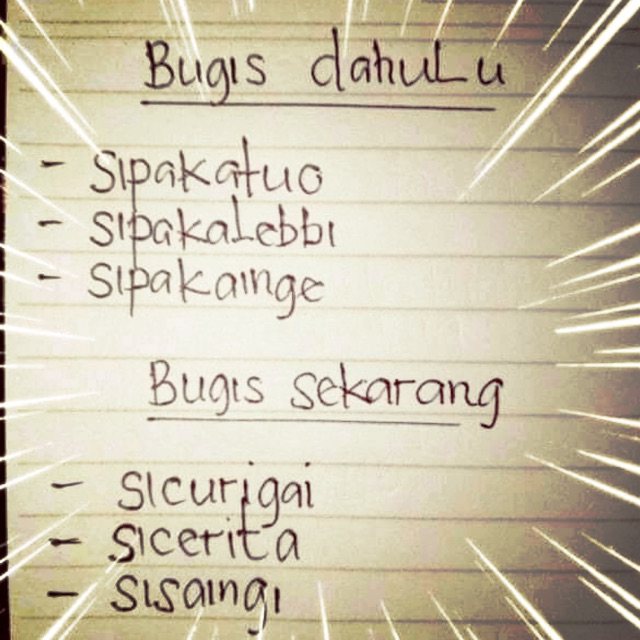 Bugis dahuLu
- sipakatuo
- sipakaLebbi
- sipakainge
Bugis sekarang
- sicurigai
- sicerita
- sisaingi